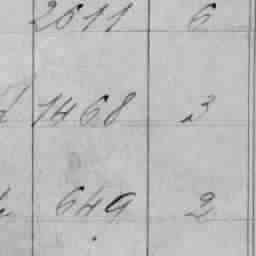 2611 6
1468 3
649 2